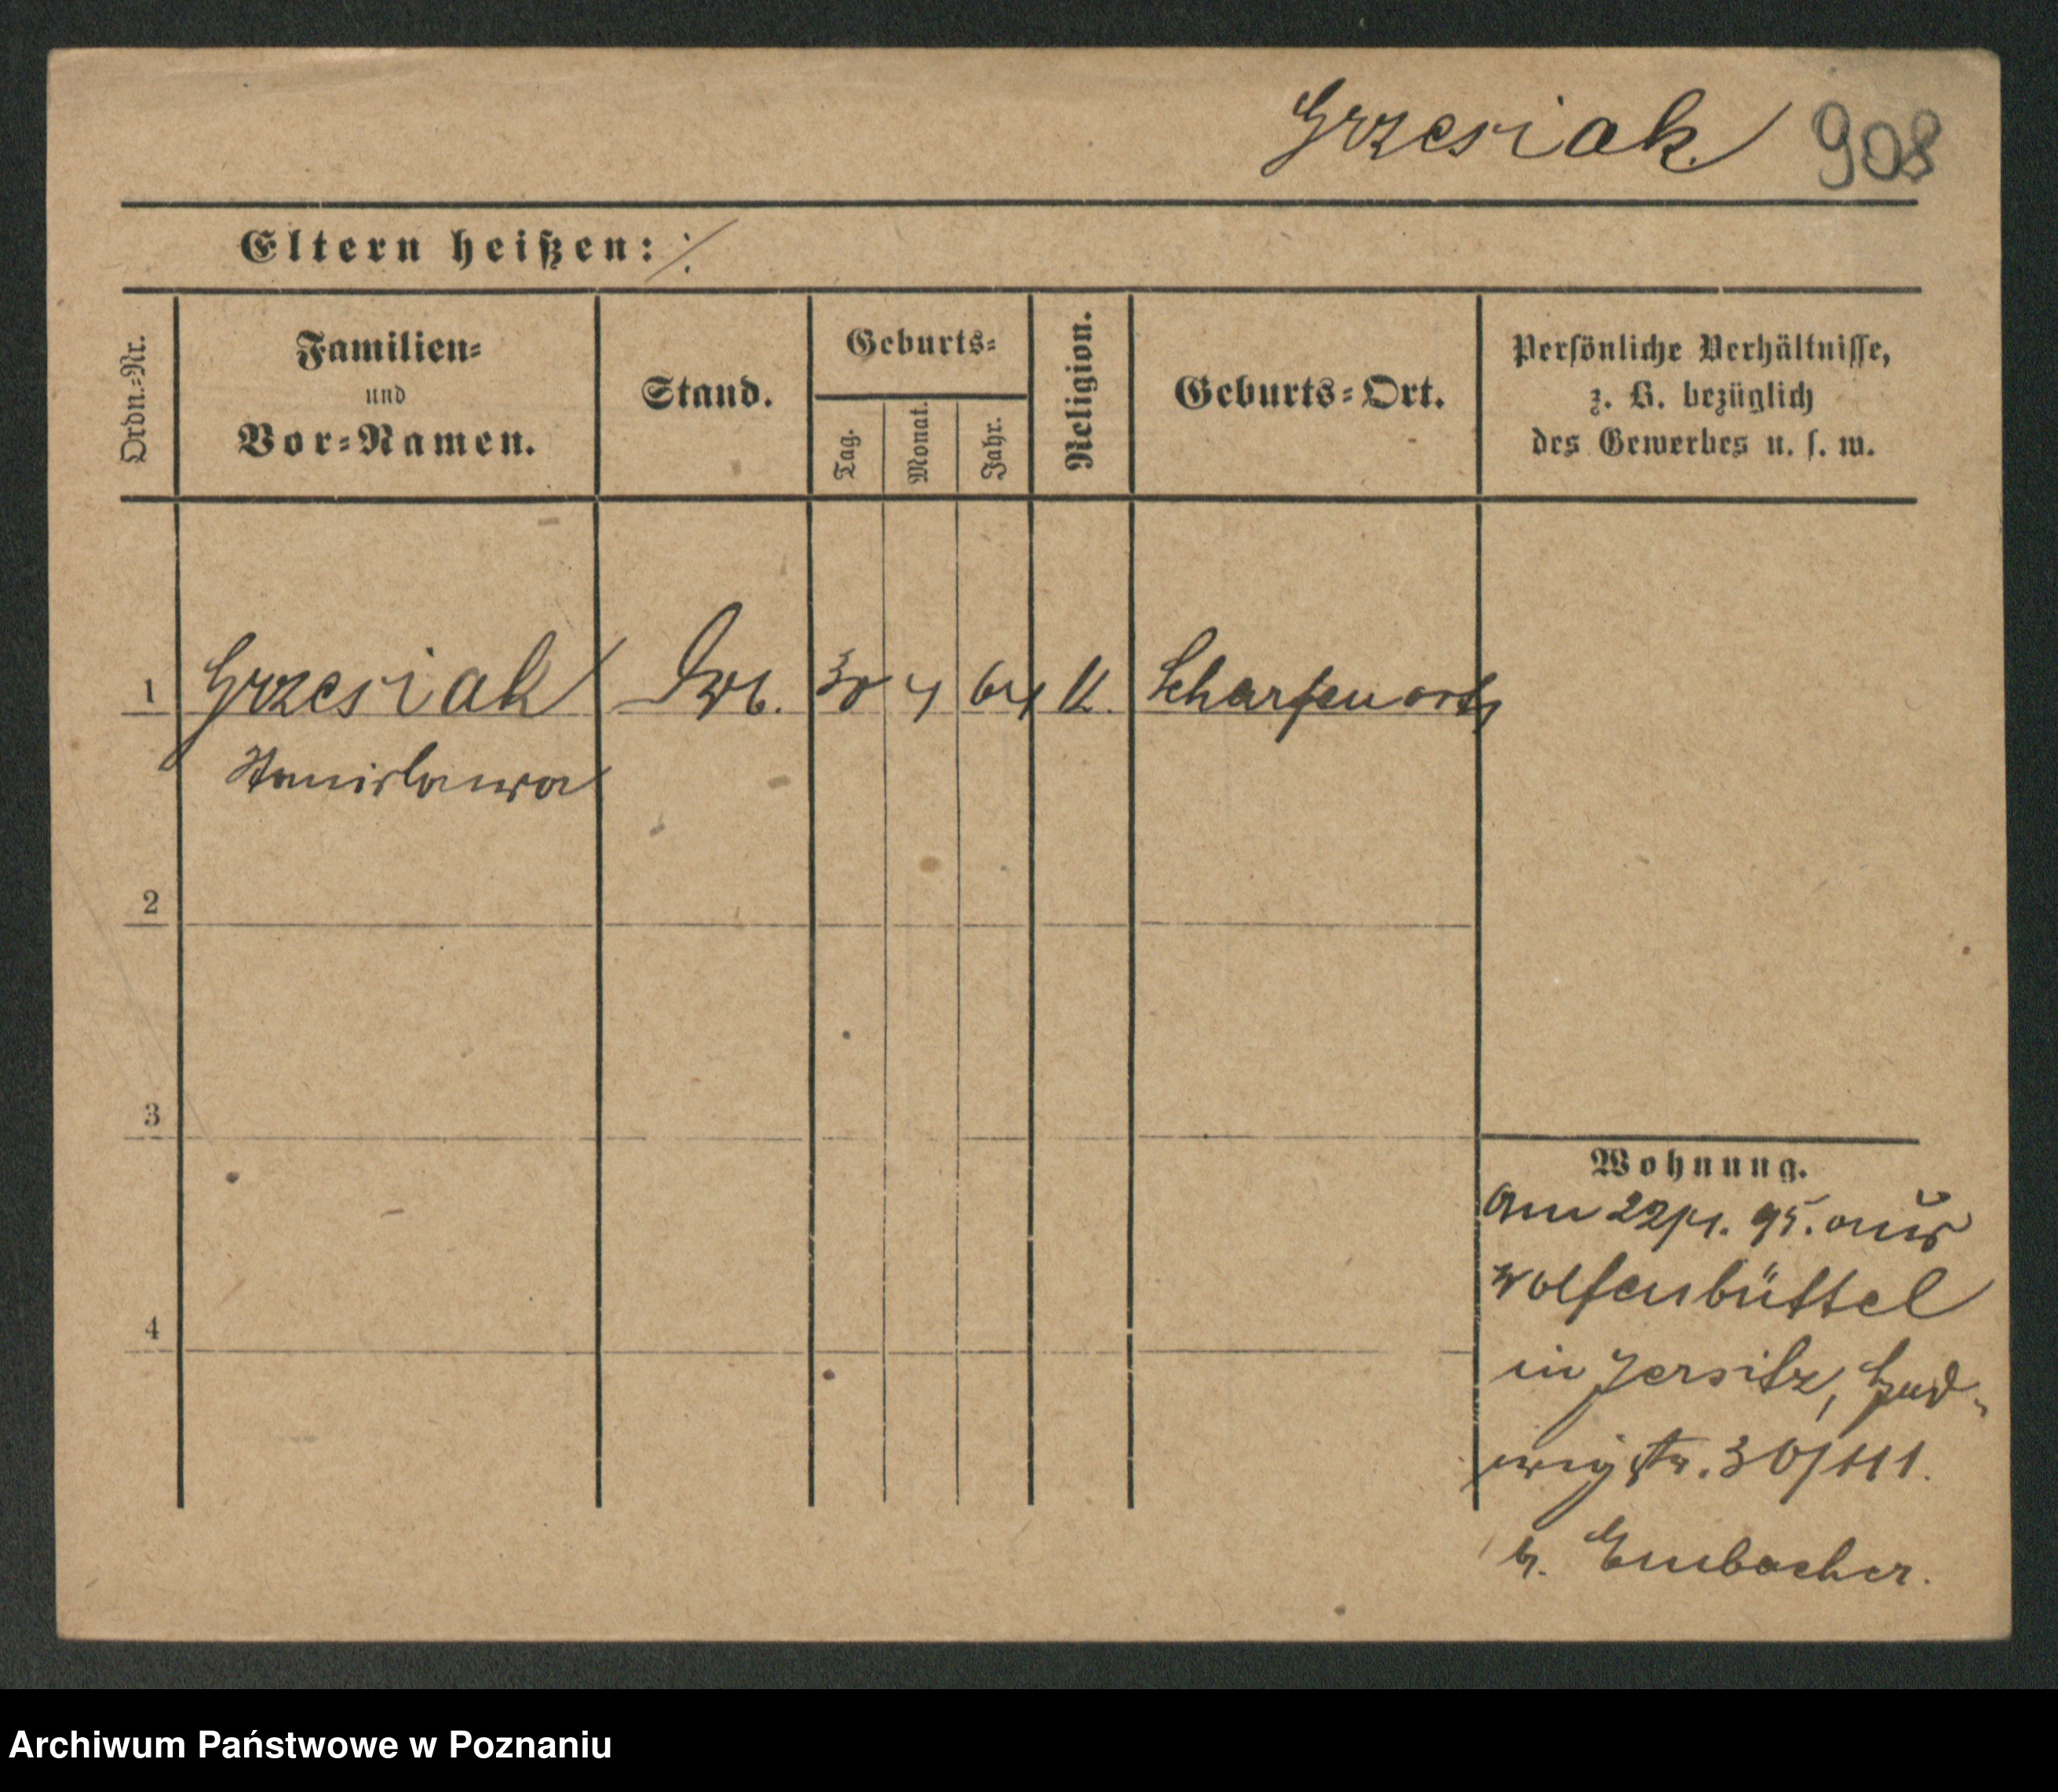 Grzesiak 908
Eltern heißen: ./.
Ordn.-Nr.
Familien-
und
Vor-Namen.
Stand.
Geburts-
Tag.
Monat.
Jahr.
Religion.
Geburts-Ort.
Persönliche Verhältnisse,
z. B. bezüglich
des Gewerbes u. s. w.
1 Grzesiak 30 4 64 K. Scharfenort
Stanislawa
2
3
4
Wohnung.
Am 22/1. 95. aus
Wolfenbüttel
in Jersitz, Hed-
wigstr. 30/III.
b. Embacher.
Archiwum Państwowe w Poznaniu